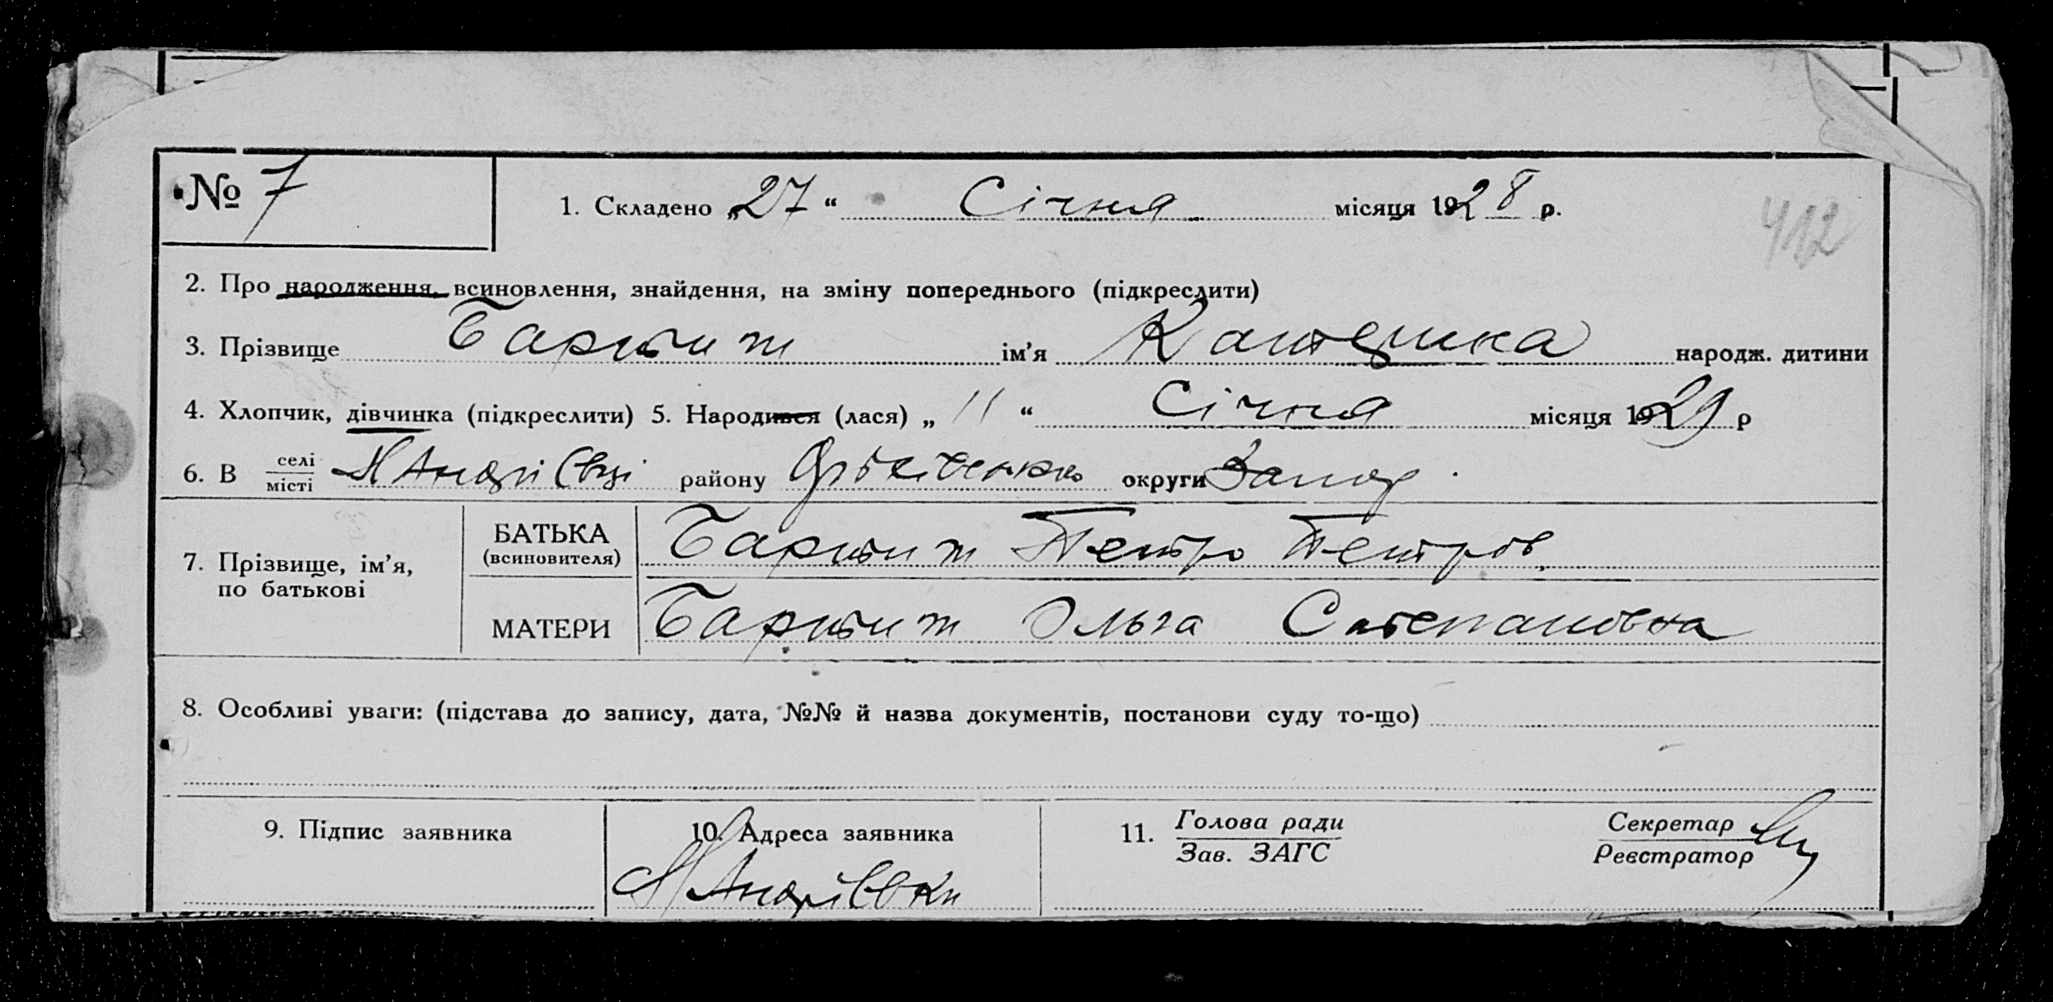 № 7
1. Складено „27“ Січня місяця 1928 р.
412
2. Про народження, всиновлення, знайдення, на зміну попереднього (підкреслити)
3. Прізвище ім’я народж. дитини
4. Хлопчик, дівчинка (підкреслити) 5. Народився (лася) „11“ Січня місяця 1929 р
6. В селі місті району округи Запор.
7. Прізвище, ім’я, по батькові
БАТЬКА (всиновителя) Петро Петров.
МАТЕРИ Ольга Степановна
8. Особливі уваги: (підстава до запису, дата, №№ й назва документів, постанови суду то-що)
9. Підпис заявника
10. Адреса заявника
11. Голова ради Зав. ЗАГС
Секретар Реєстратор